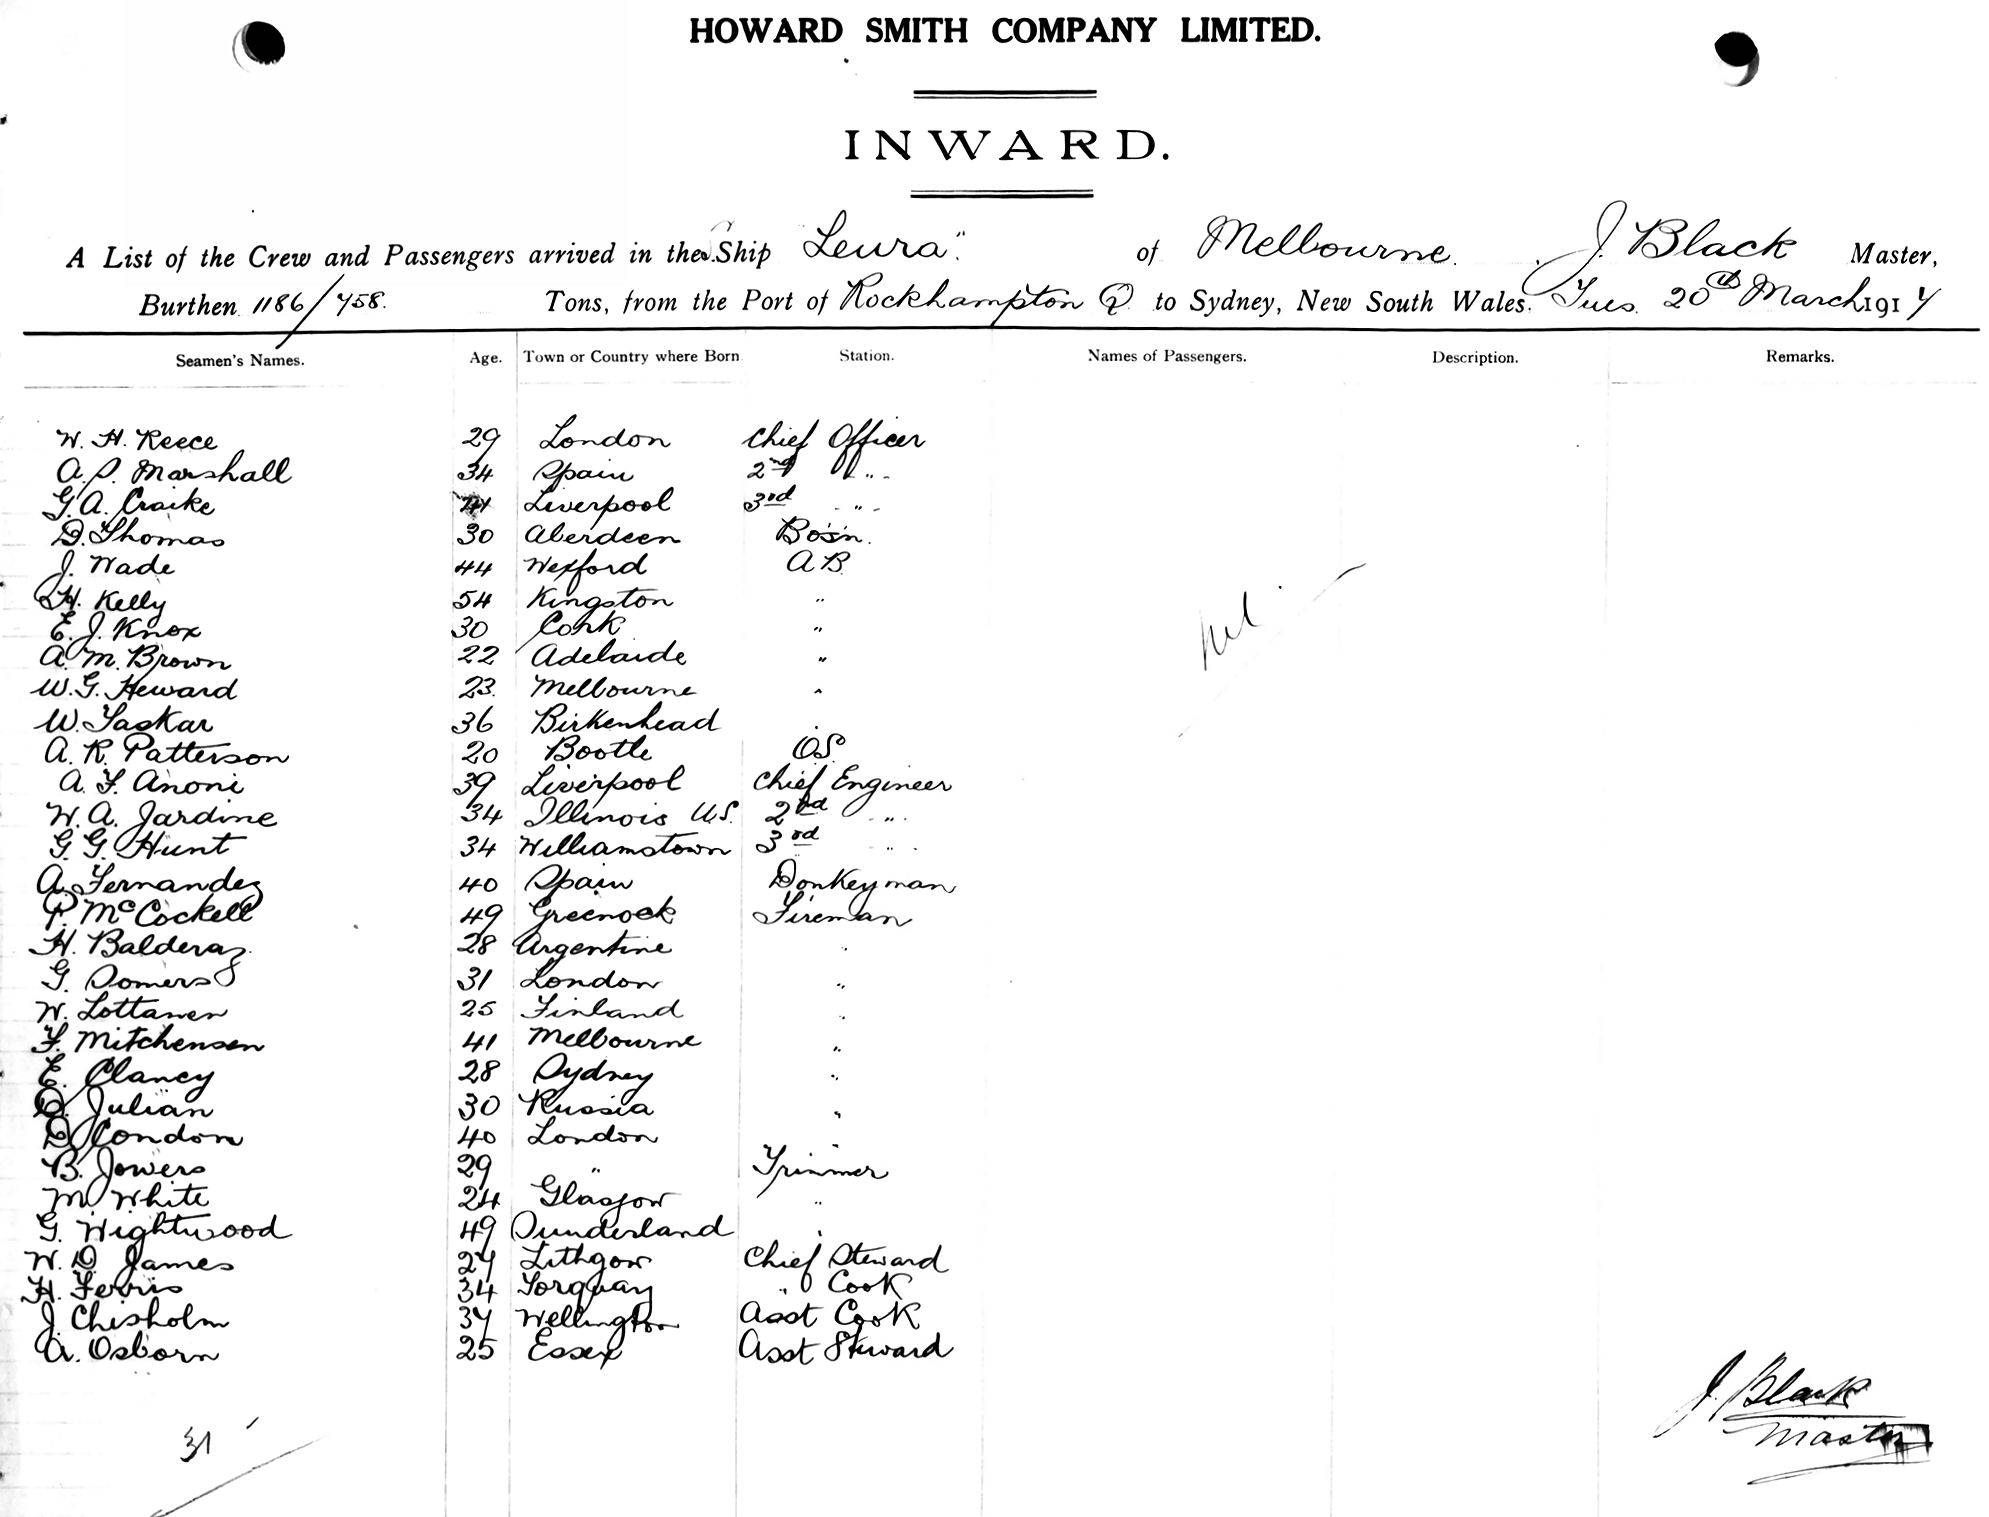 HOWARD SMITH COMPANY LIMITED.
INWARD.
A List of the Crew and Passengers arrived in the S.Ship "Leura" of Melbourne. J. Black Master,
Burthen 1186/758. Tons, from the Port of Rockhampton Q. to Sydney, New South Wales. Tues. 20th March 1917
Seamen's Names. Age. Town or Country where Born Station. Names of Passengers. Description. Remarks.
W. H. Reece 29 London Chief Officer
A. S. Marshall 34 Spain 2nd " "
G. A. Craike Liverpool 3rd " "
D. Thomas 30 Aberdeen Bo's'n.
J. Wade 44 Wexford A B.
H. Kelly 54 Kingston "
E. J. Knox 30 Cork "
A. M. Brown 22 Adelaide "
W. G. Heward 23. Melbourne "
W. Taskar 36 Birkenhead "
A. R. Patterson 20 Bootle O.S.
A. F. Anoni 39 Liverpool Chief Engineer
W. A. Jardine 34 Illinois U.S. 2nd "
G. G. Hunt 34 Williamstown 3rd "
A. Fernandez 40 Spain Donkeyman
P. McCockell 49 Greenock Fireman
H. Balderaz 28 Argentine "
G. Somers 31 London "
W. Lottanen 25 Finland "
F. Mitchensen 41 Melbourne "
E. Clancy 28 Sydney "
Julian 30 Russia "
D. Condon 40 London "
B. Jowers 29 " Trimmer
M. White 24 Glasgow "
G. Wightwood 49 Sunderland "
W. D. James 27 Lithgow Chief Steward
H. Ferris 34 Torquay " Cook
J. Chisholm 37 Wellington Asst Cook
A. Osborn 25 Essex Asst Steward
Nil
31
J. Black
Master